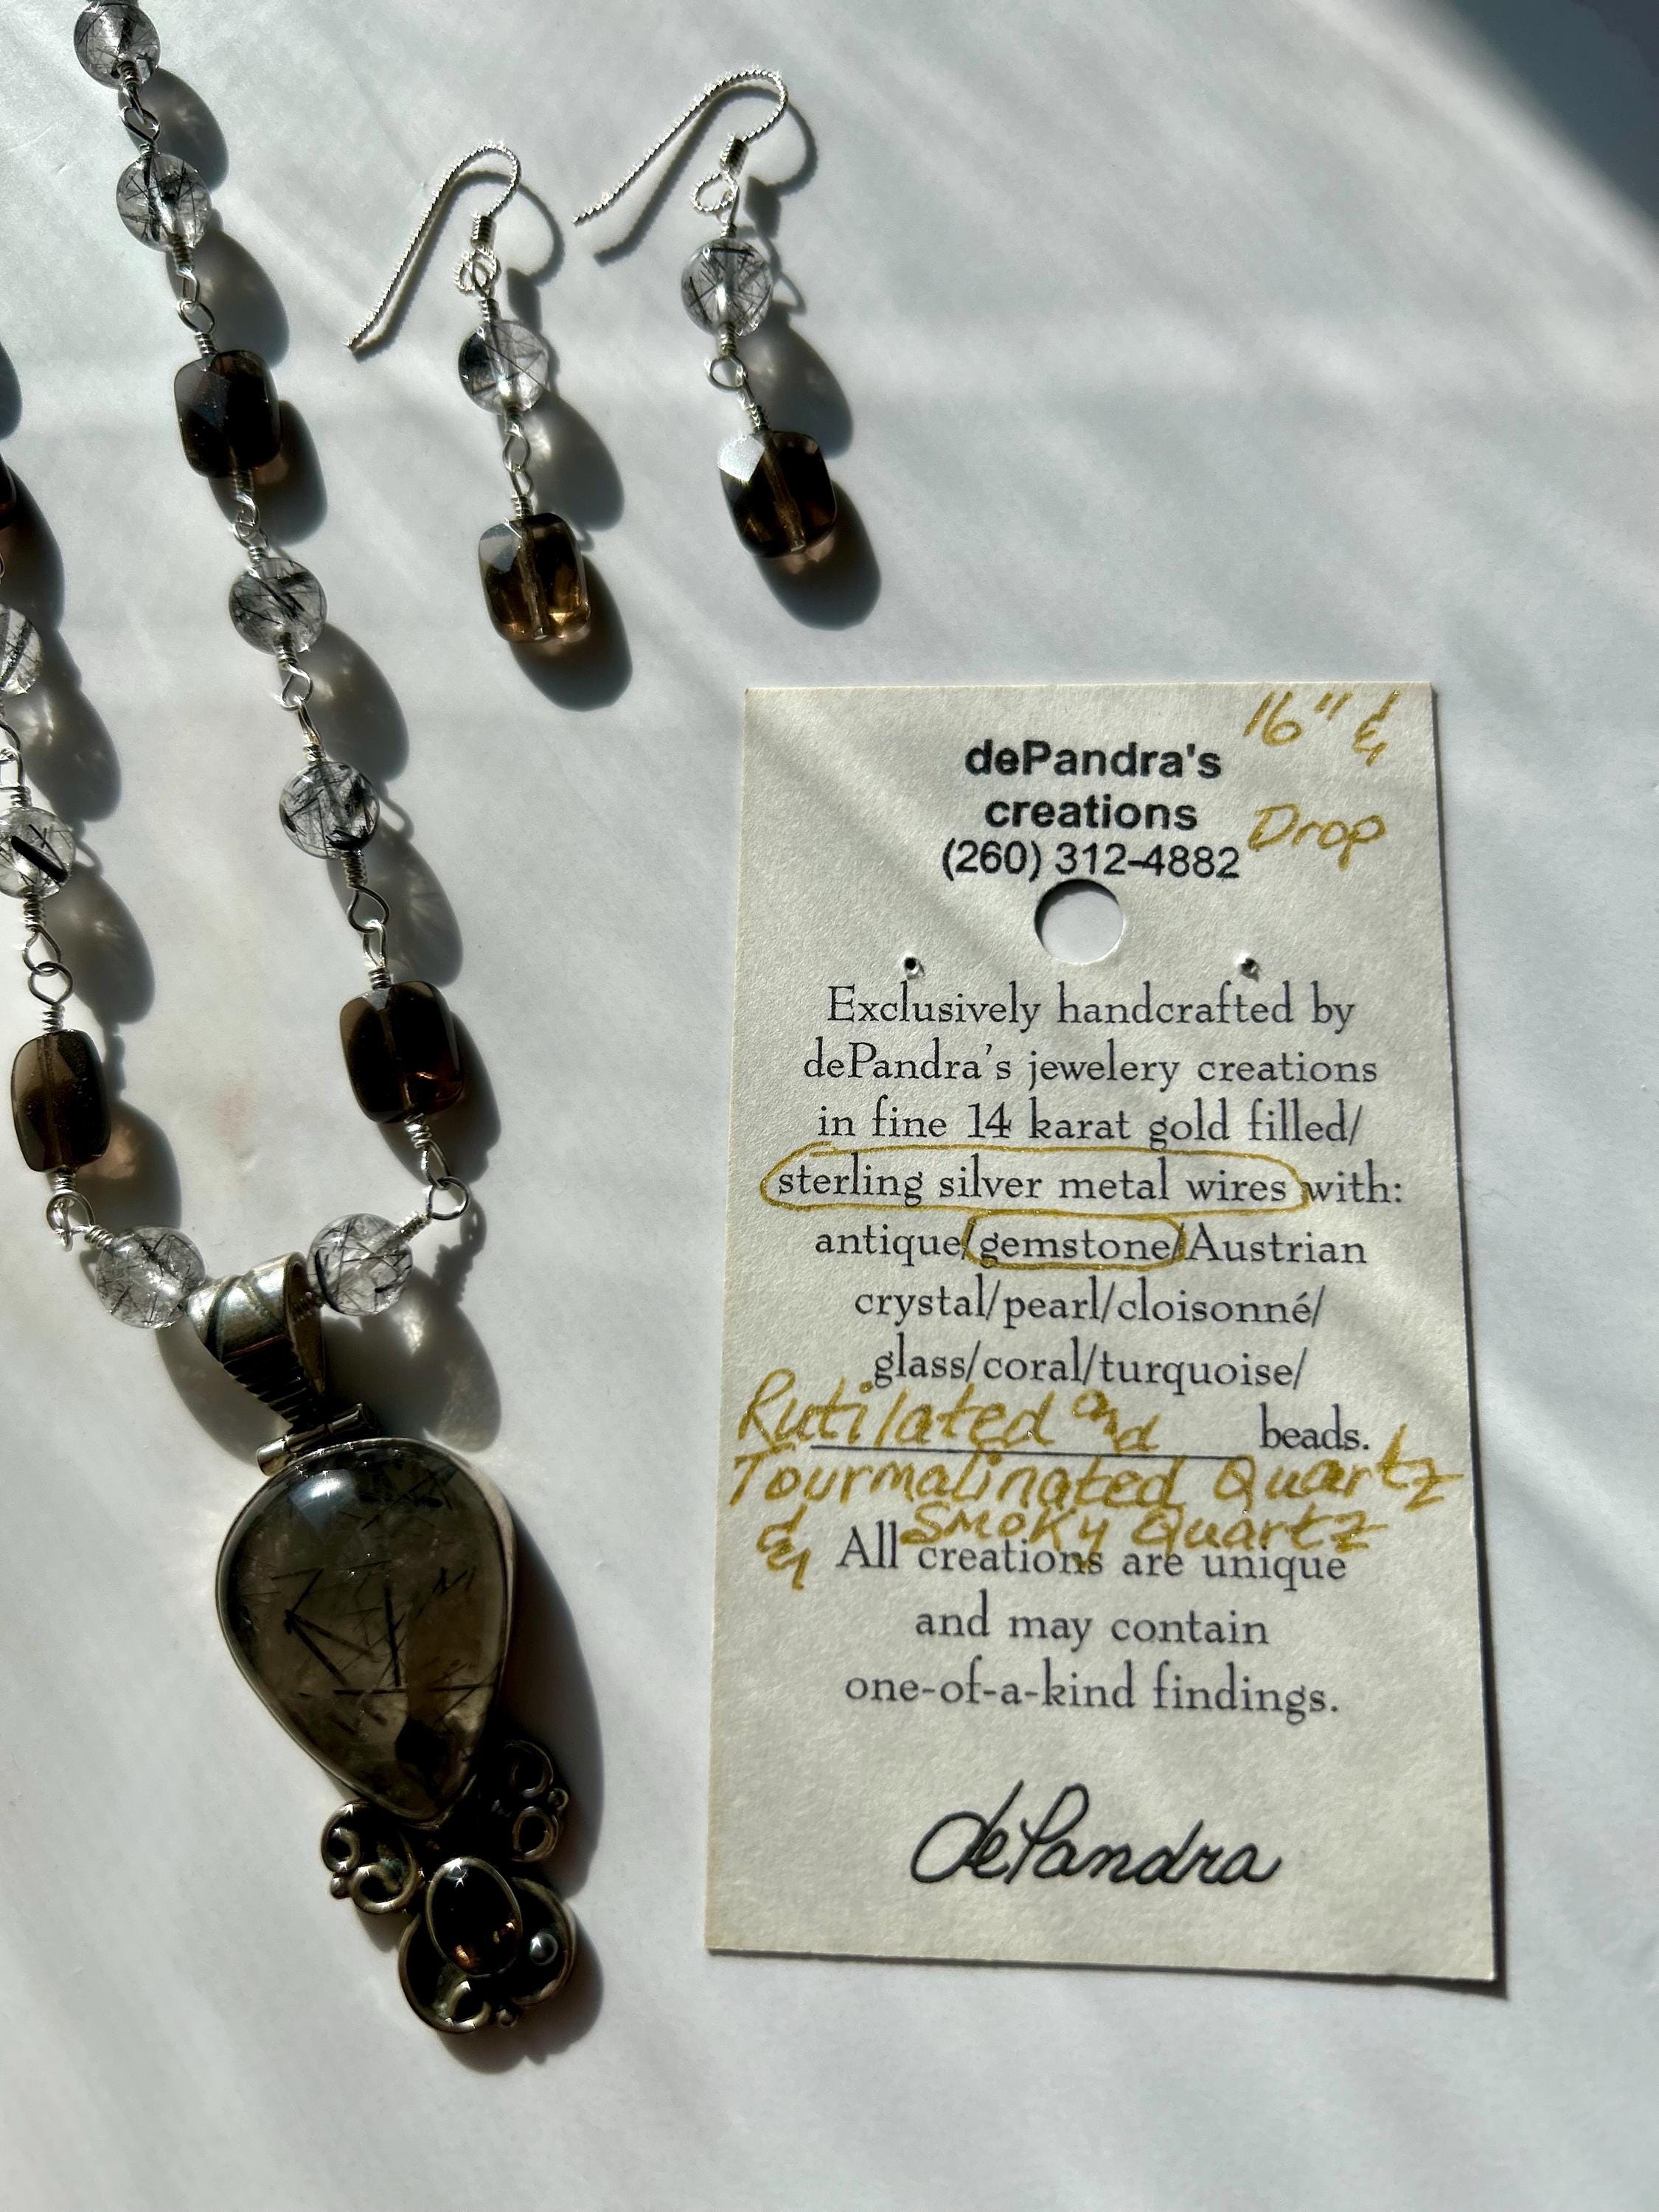 16" &
dePandra's
creations
Drop
(260) 312-4882
Exclusively handcrafted by
dePandra's jewelery creations
in fine 14 karat gold filled/
sterling silver metal wires with:
antique/gemstone/Austrian
crystal/pearl/cloisonné/
glass/coral/turquoise/
Rutilated and beads.
Tourmalinated Quartz
& Smoky Quartz
All creations are unique
and may contain
one-of-a-kind findings.
dePandra